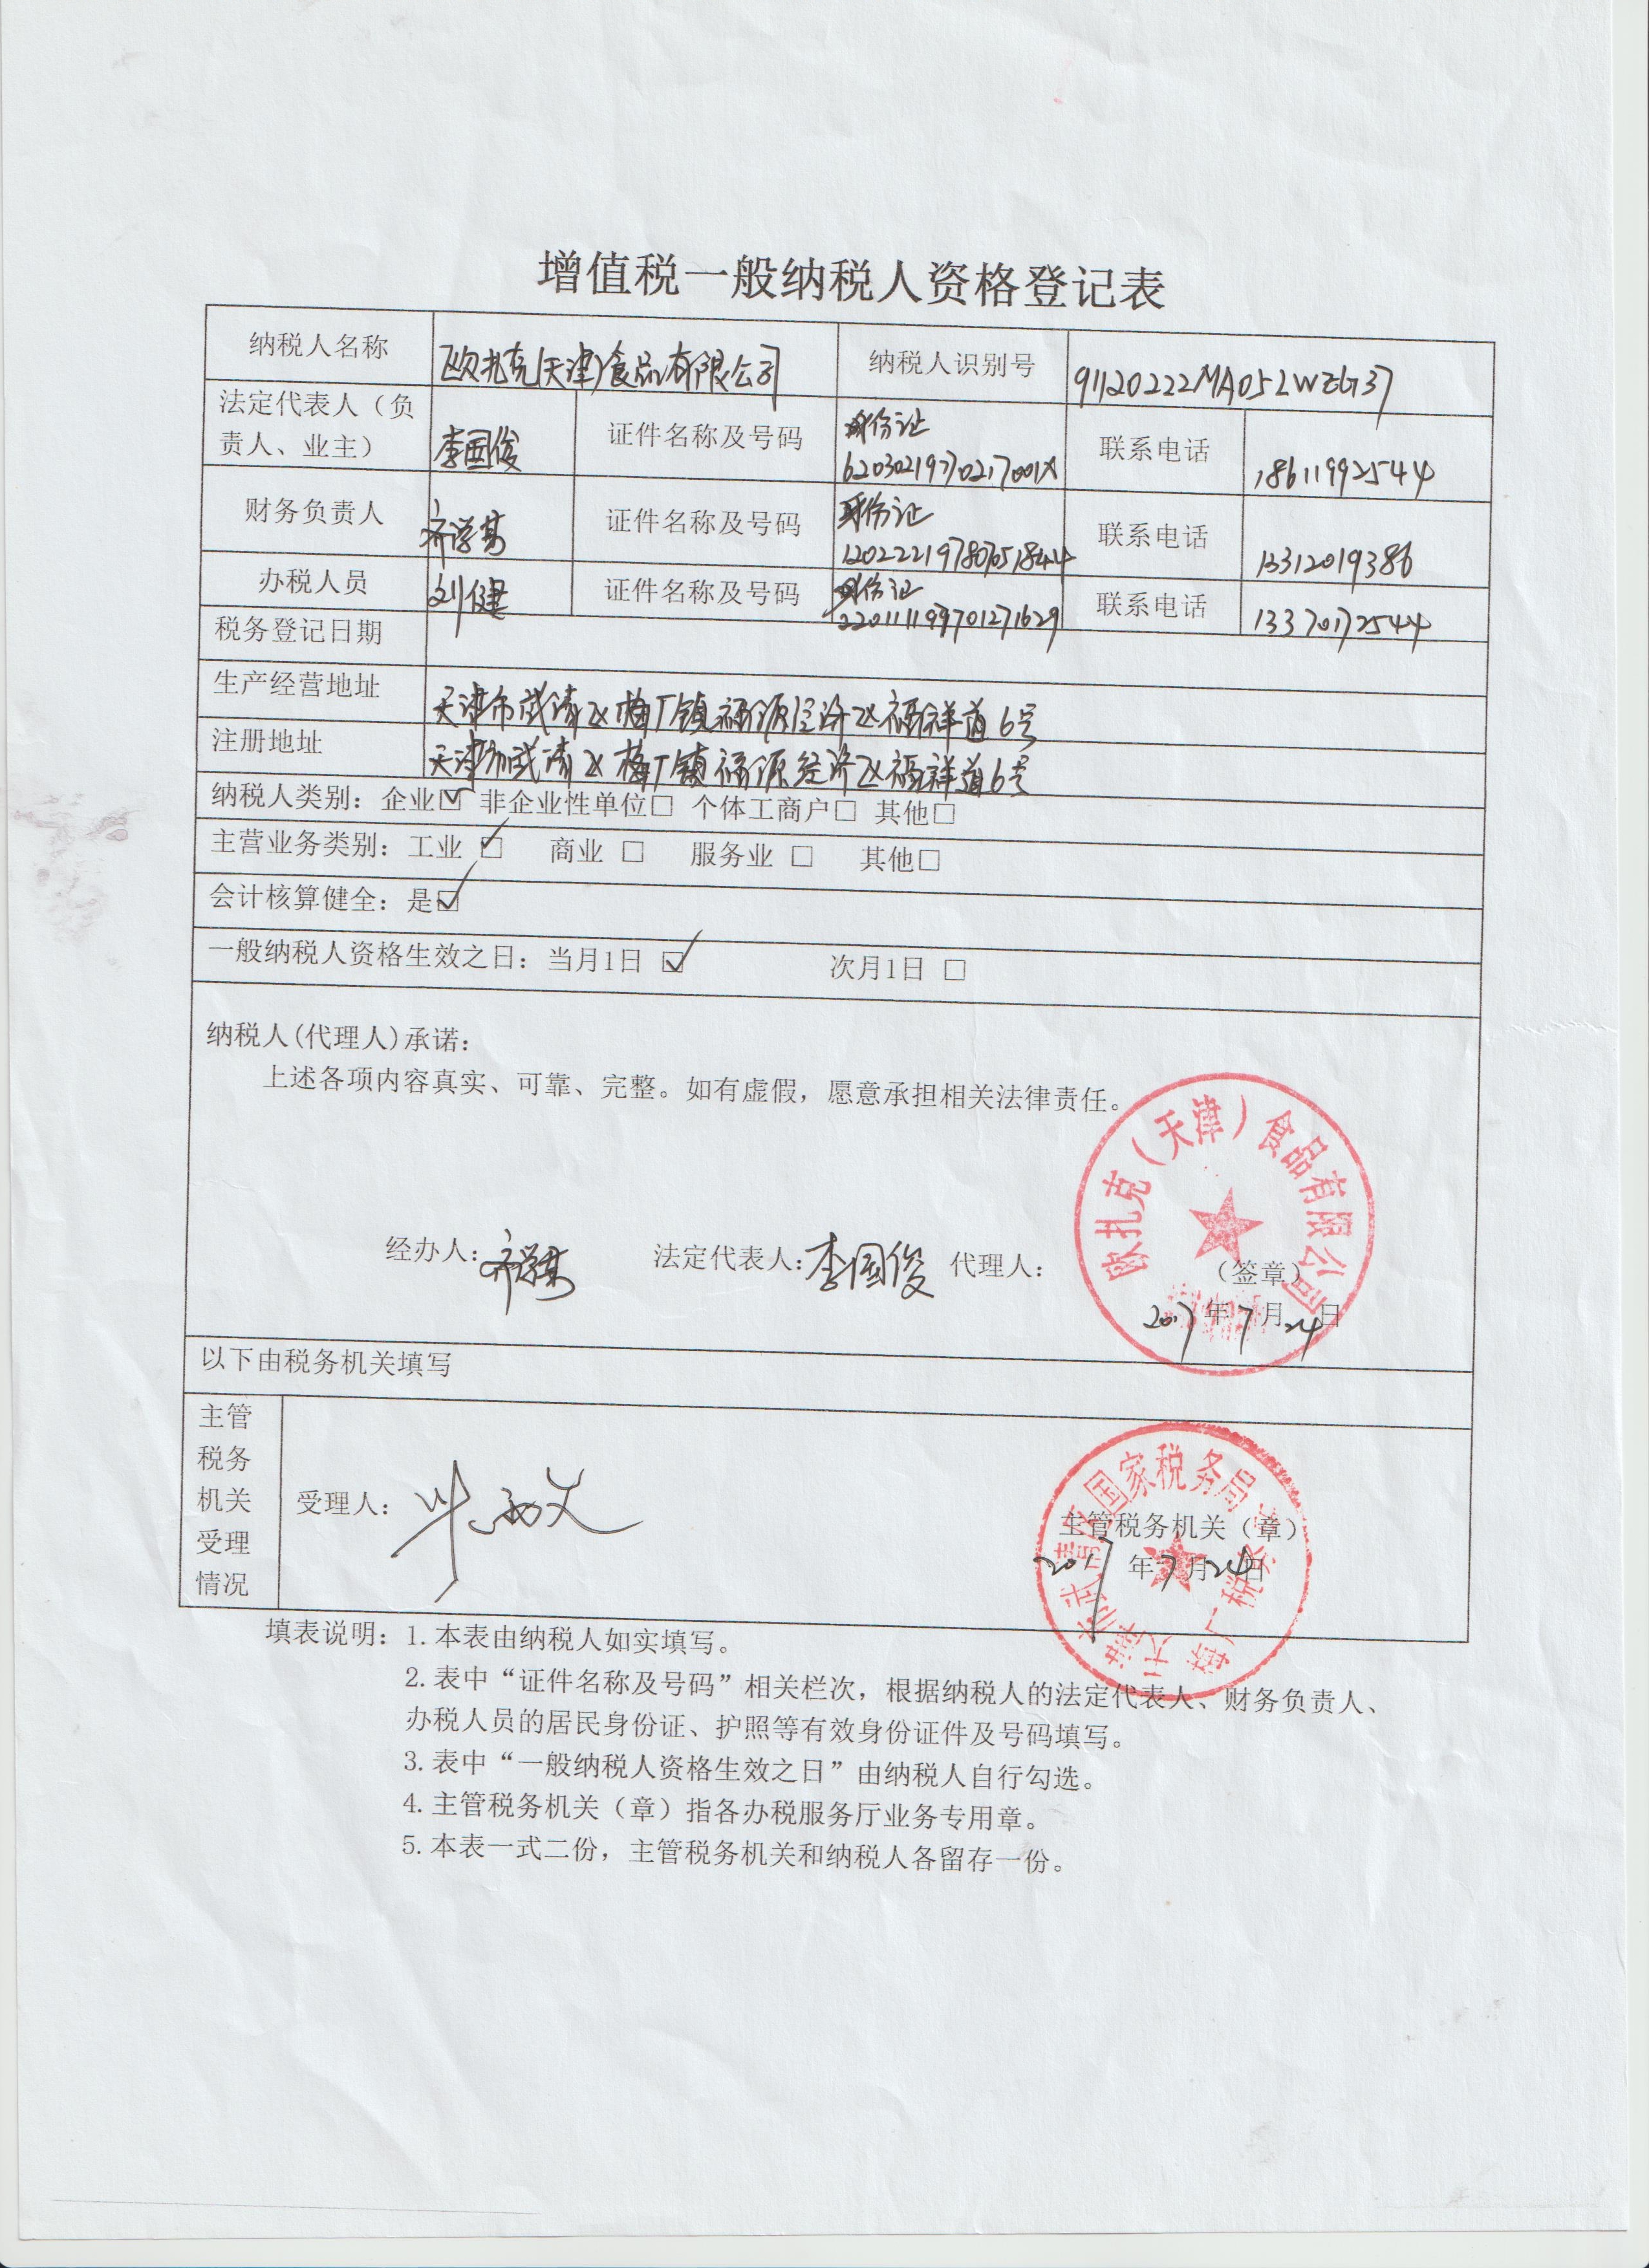 增值税一般纳税人资格登记表
纳税人名称 欧扎克(天津)食品有限公司 纳税人识别号 91120222MA05LWEG37
法定代表人（负责人、业主） 李国俊 证件名称及号码 身份证 62030219770217001X 联系电话 18611992544
财务负责人 齐学 证件名称及号码 身份证 联系电话 13312019386
办税人员 刘健 证件名称及号码 身份证 220111199701271629 联系电话 13370172544
税务登记日期
生产经营地址 天津市武清区梅厂镇福源经济区福祥道6号
注册地址 天津市武清区梅厂镇福源经济区福祥道6号
纳税人类别：企业☑ 非企业性单位□ 个体工商户□ 其他□
主营业务类别：工业 ☑ 商业 □ 服务业 □ 其他□
会计核算健全：是☑
一般纳税人资格生效之日：当月1日 ☑ 次月1日 □
纳税人(代理人)承诺：
上述各项内容真实、可靠、完整。如有虚假，愿意承担相关法律责任。
欧扎克（天津）食品有限公司
经办人：齐学 法定代表人：李国俊 代理人： （签章）
2017年7月24日
以下由税务机关填写
主管税务机关受理情况
受理人：
天津市武清区国家税务局梅厂税务所
主管税务机关（章）
2017年7月24日
填表说明：1.本表由纳税人如实填写。
2.表中“证件名称及号码”相关栏次，根据纳税人的法定代表人、财务负责人、
办税人员的居民身份证、护照等有效身份证件及号码填写。
3.表中“一般纳税人资格生效之日”由纳税人自行勾选。
4.主管税务机关（章）指各办税服务厅业务专用章。
5.本表一式二份，主管税务机关和纳税人各留存一份。